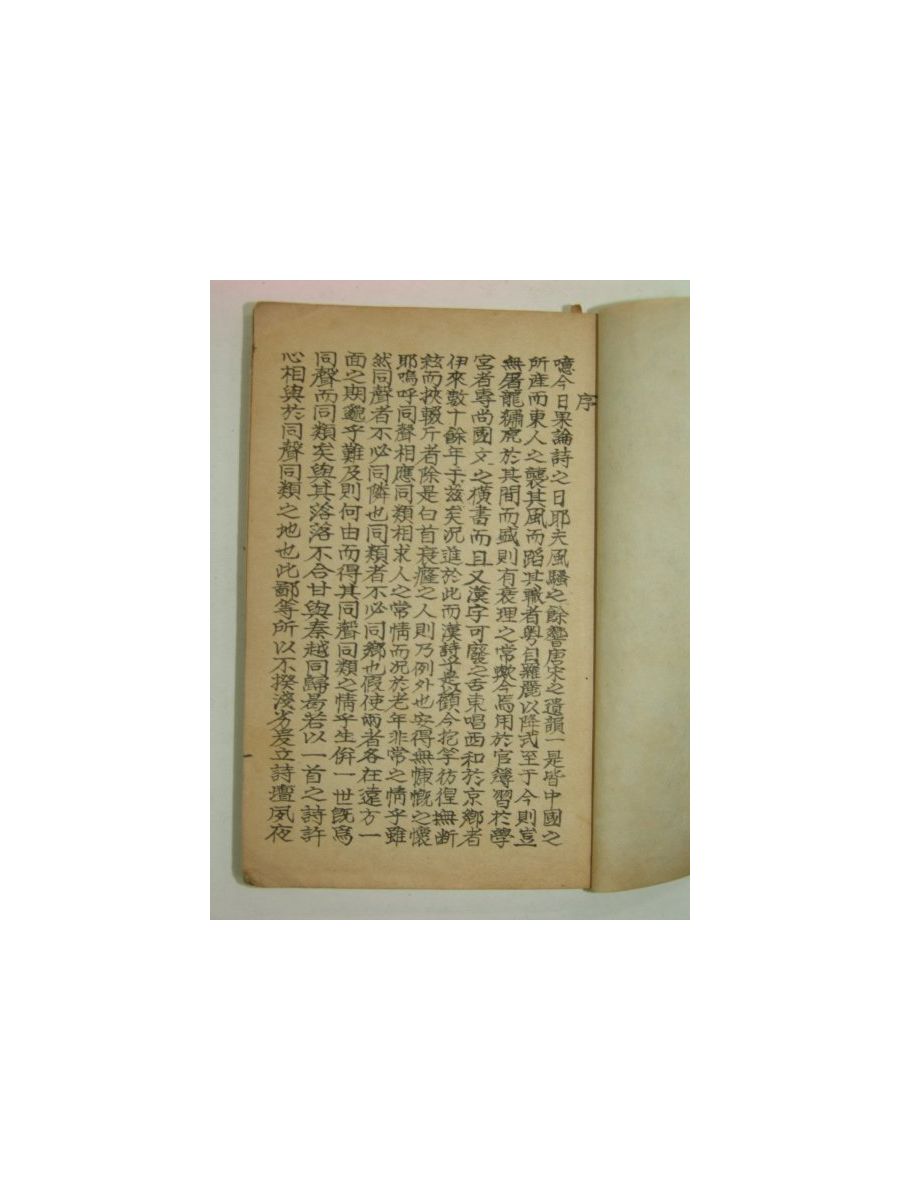 序
噫今日果論詩之日耶夫風騷之餘響唐宋之遺韻一是皆中國之
所産而東人之襲其風而蹈其職者粤自羅麗以降式至于今則豈
無屠龍獅虎於其間而盛則有衰理之常歟今焉用於官簿習於學
宮者專尚國文之橫書而且又漢字可廢之舌東唱西和於京鄉者
伊來數十餘年于玆矣況進於此而漢詩乎是以顧今抱竽彷徨撫斷
絃而挾輟斤者除是白首衰癃之人則乃例外也安得無慷慨之懷
耶嗚呼同聲相應同類相求人之常情而况於老年非常之情乎雖
然同聲者不必同隣也同類者不必同鄉也假使兩者各在遠方一
面之期邈乎難及則何由而得其同聲同類之情乎生倂一世旣爲
同聲而同類矣與其落落不合甘與秦越同歸曷若以一首之詩許
心相與於同聲同類之地也此鄙等所以不揆淺劣爰立詩壇夙夜